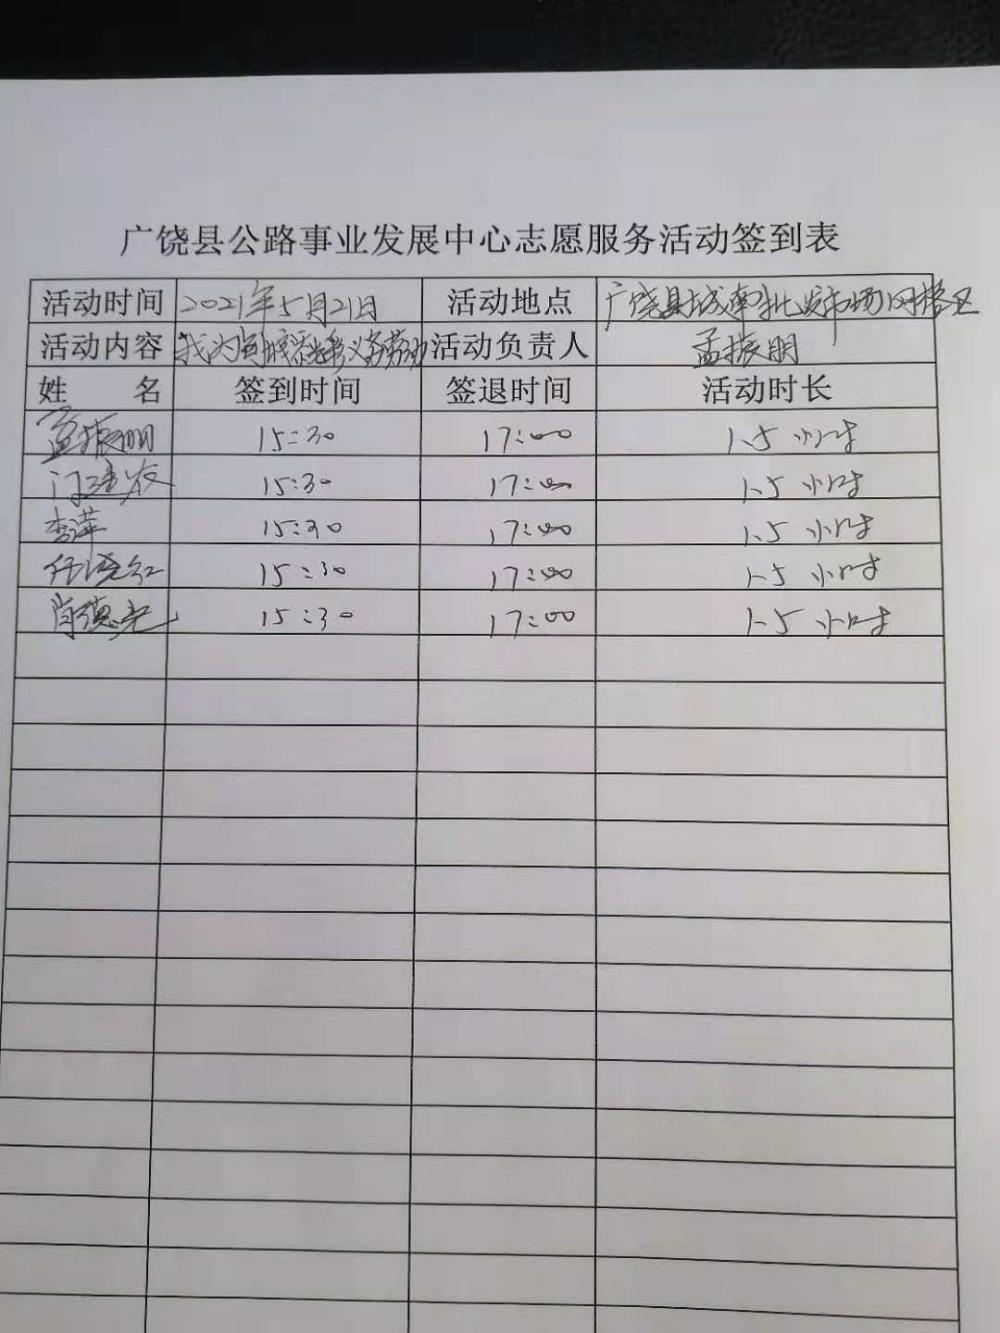 广饶县公路事业发展中心志愿服务活动签到表
活动时间 2021年5月21日 活动地点 广饶县城南批发市场网格区
活动内容 我为创城添光彩义务劳动 活动负责人 孟振明
姓 名 签到时间 签退时间 活动时长
孟振明 15:30 17:00 1.5小时
门建农 15:30 17:00 1.5小时
李萍 15:30 17:00 1.5小时
任晓红 15:30 17:00 1.5小时
肖德光 15:30 17:00 1.5小时